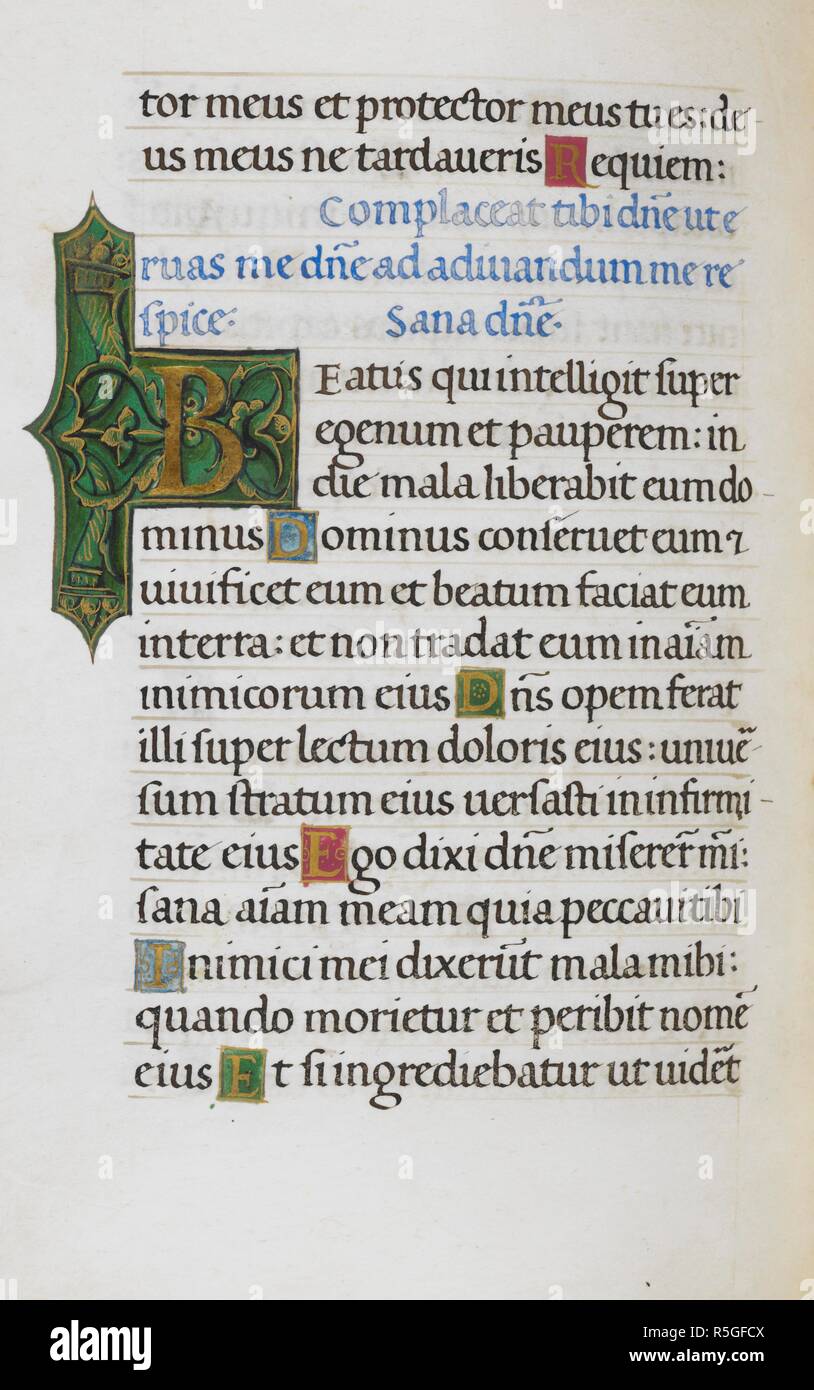 tor meus et protector meus tu es: de
us meus ne tardaueris Requiem:
Complaceat tibi dñe ut e
ruas me dñe ad adiuuandum me re
spice. Sana dñe.
BEatus qui intelligit super
egenum et pauperem: in
die mala liberabit eum do-
minus Dominus conseruet eum ⁊
uiuificet eum et beatum faciat eum
in terra: et non tradat eum in aĩam
inimicorum eius Dñs opem ferat
illi super lectum doloris eius: uniuẽ-
sum stratum eius uersasti in infirmi-
tate eius Ego dixi dñe miserer̃ m̃i:
sana aĩam meam quia peccaui tibi
Inimici mei dixerũt mala mihi:
quando morietur et peribit nomẽ
eius Et si ingrediebatur ut uidẽt
alamy
Image ID: R5GFCX
www.alamy.com